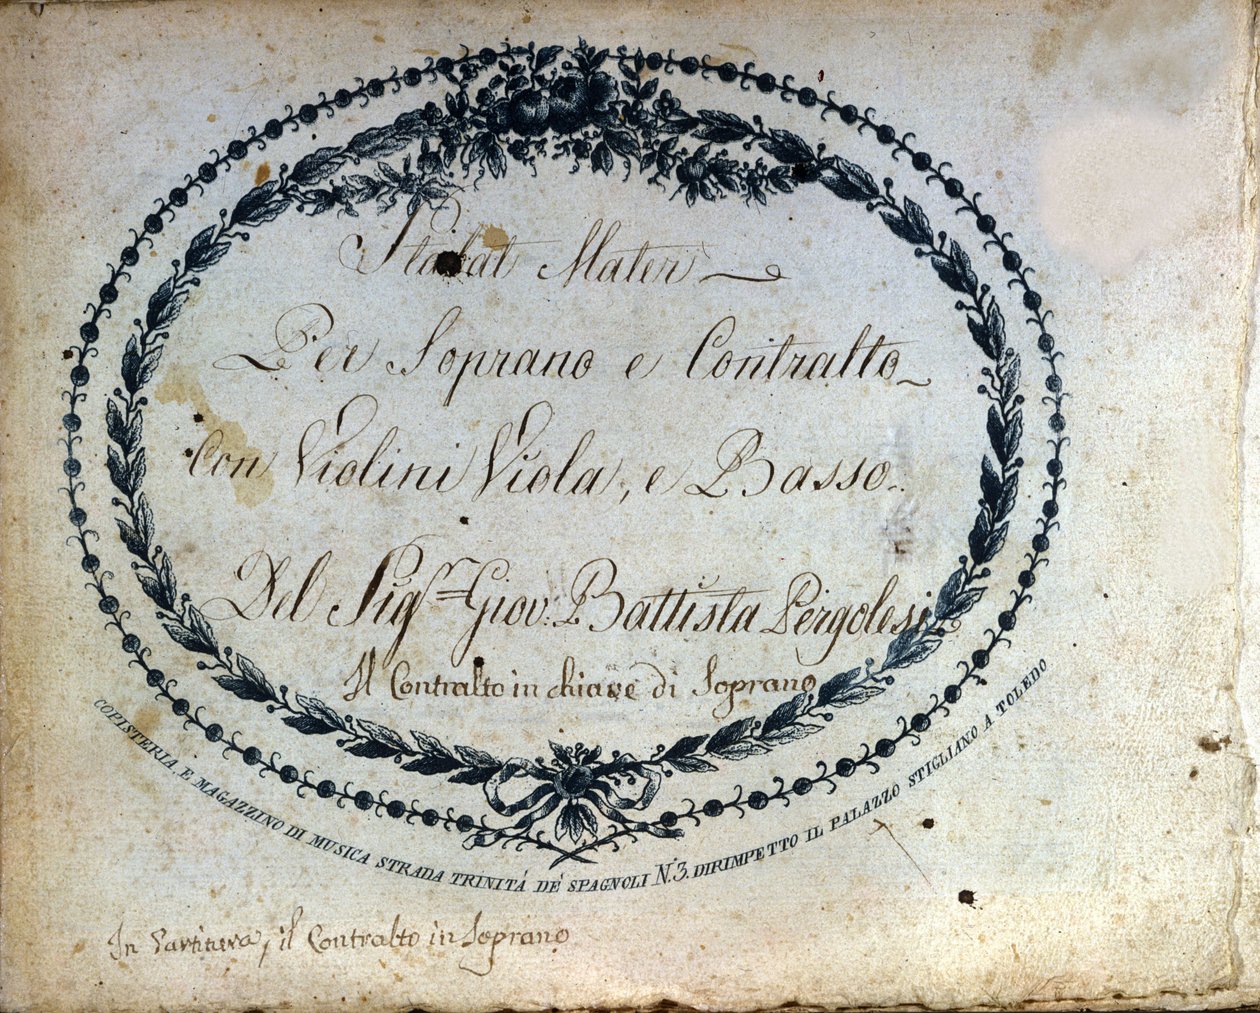 Stabat Mater
Per Soprano e Contralto
Con Violini Viola, e Basso.
Del Sigr. Giov: Battista Pergolesi
Il Contralto in chiave di Soprano
COPISTERIA, E MAGAZZINO DI MUSICA STRADA TRINITÁ DE' SPAGNOLI N.3. DIRIMPETTO IL PALAZZO STIGLIANO A TOLEDO
In Partitura, il Contralto in Soprano